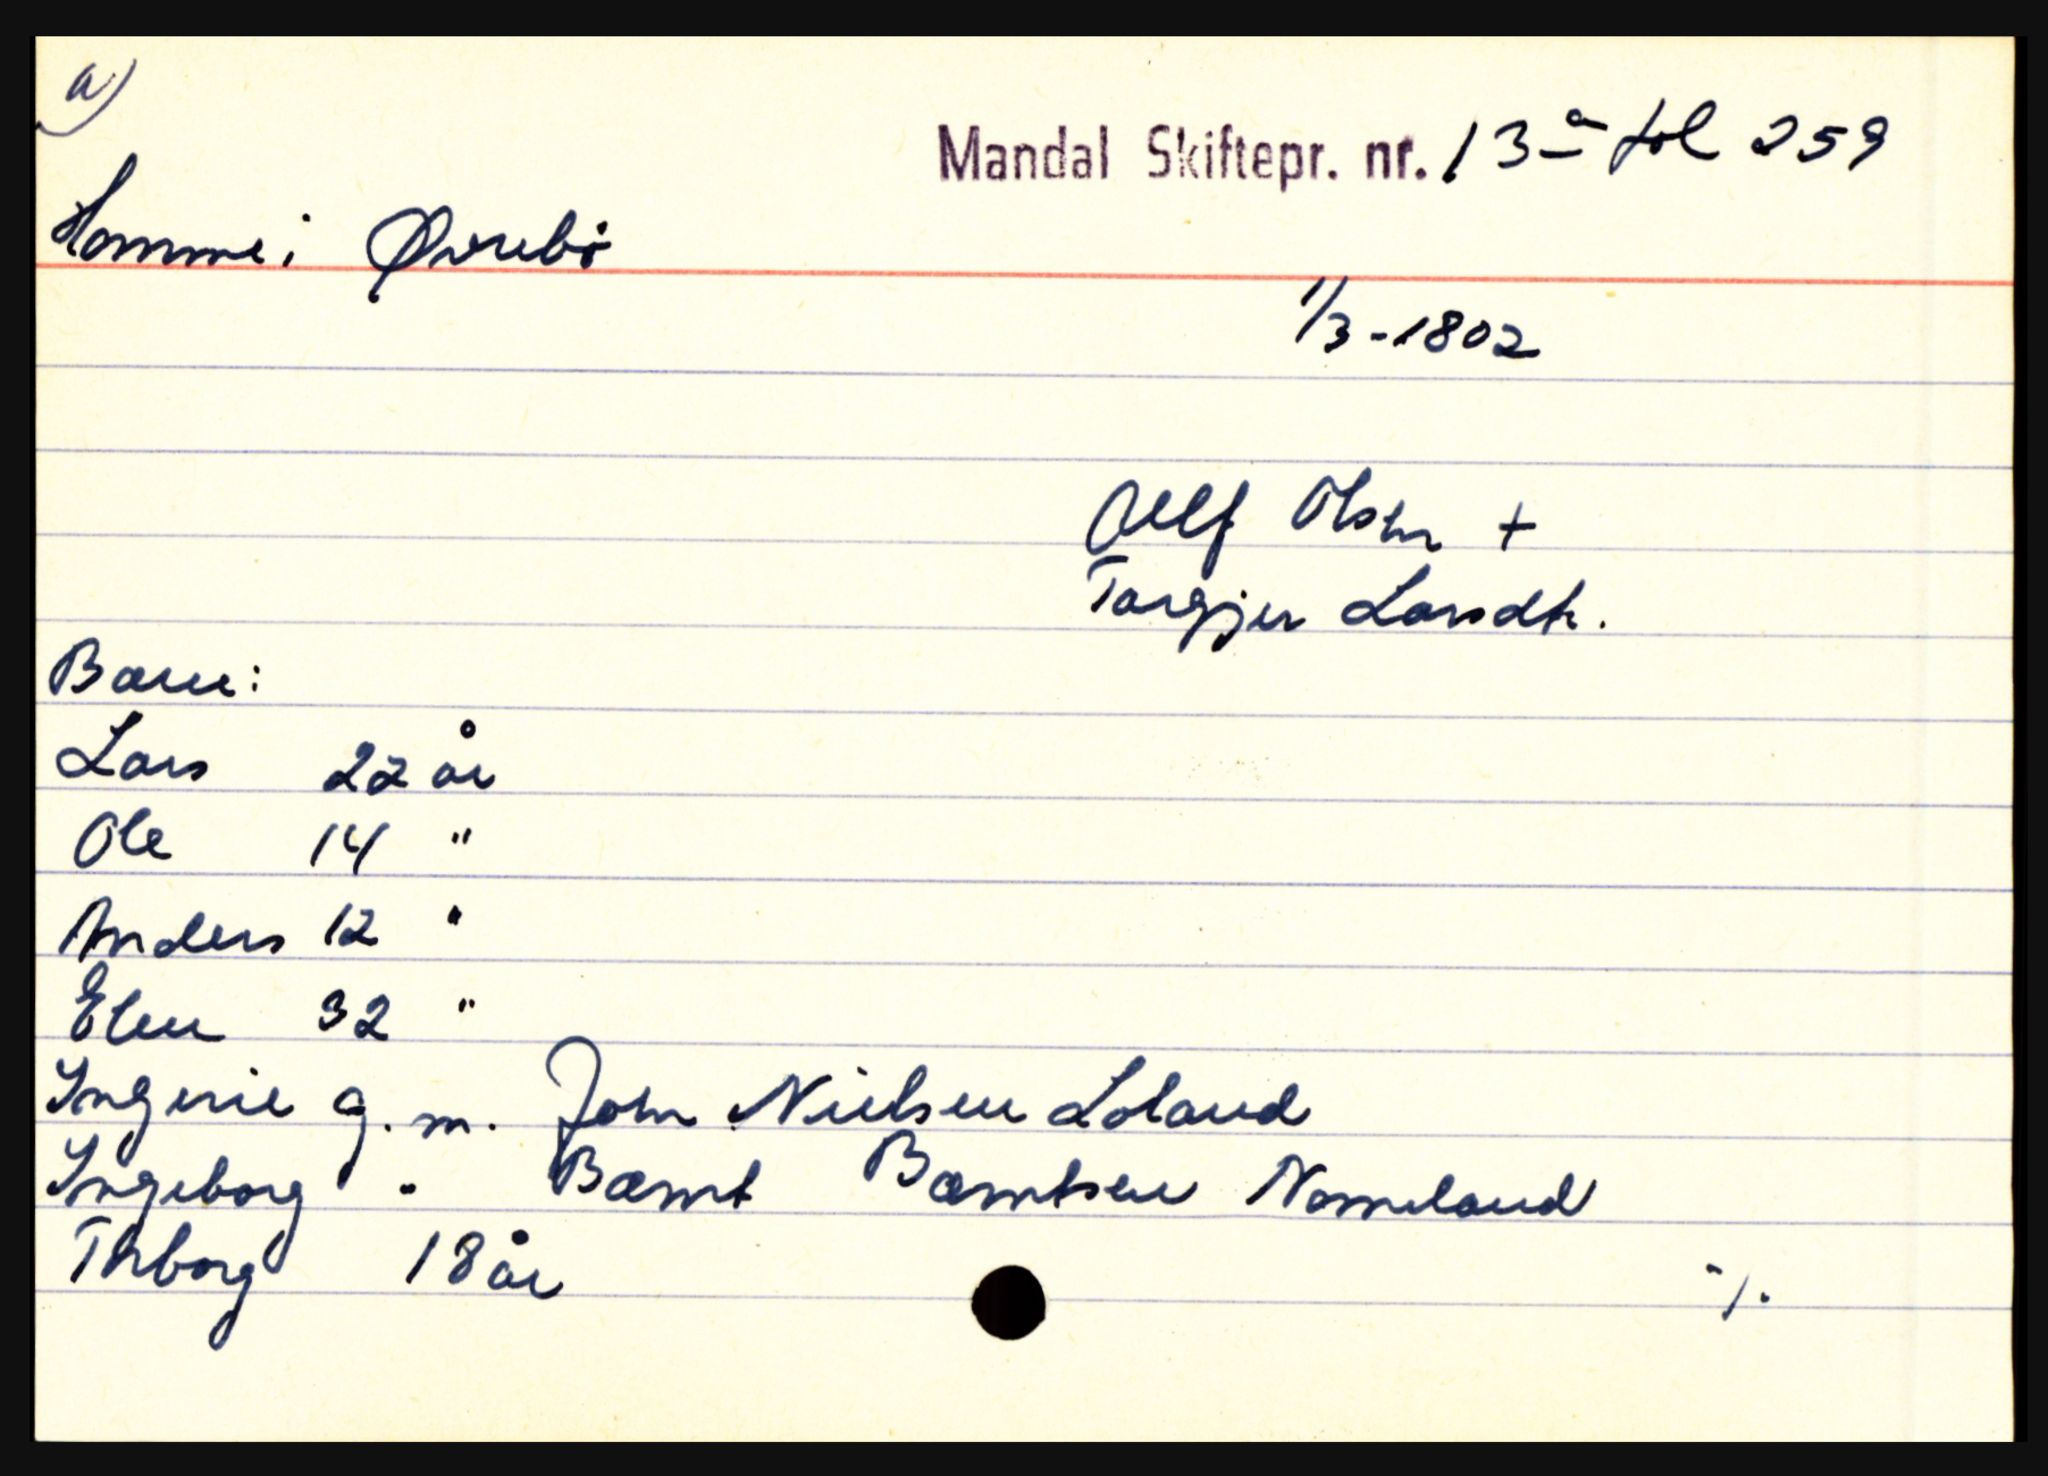 a)
Mandal Skiftepr. nr. 13a fol 259
Homme i Øvrebö
1/3-1802
Alf Olsen +
Torgjer Larsdtr.
Barn:
Lars 22 år
Ole 14 "
Anders 12 "
Elen 32 "
Ingerie g. m. John Nielsen Loland
Ingeborg " Bærnt Bærntsen Nomeland
Thrborg 18 år
./.